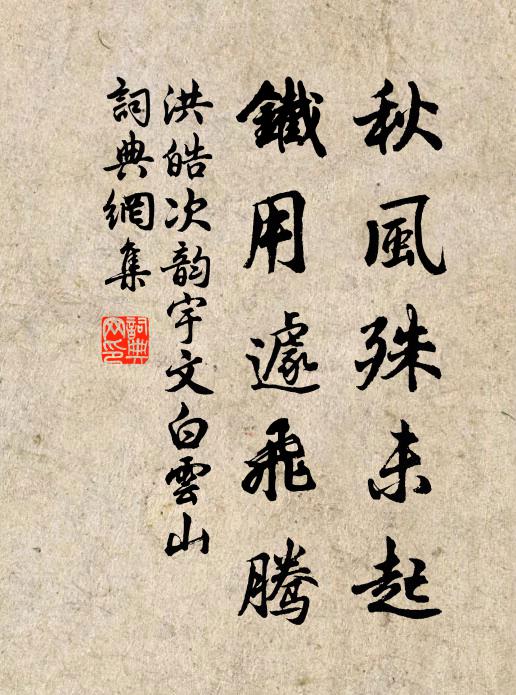 秋風殊未起
鐵用遽飛騰
洪皓次韵宇文白雲山
詞典網集
詞典網印